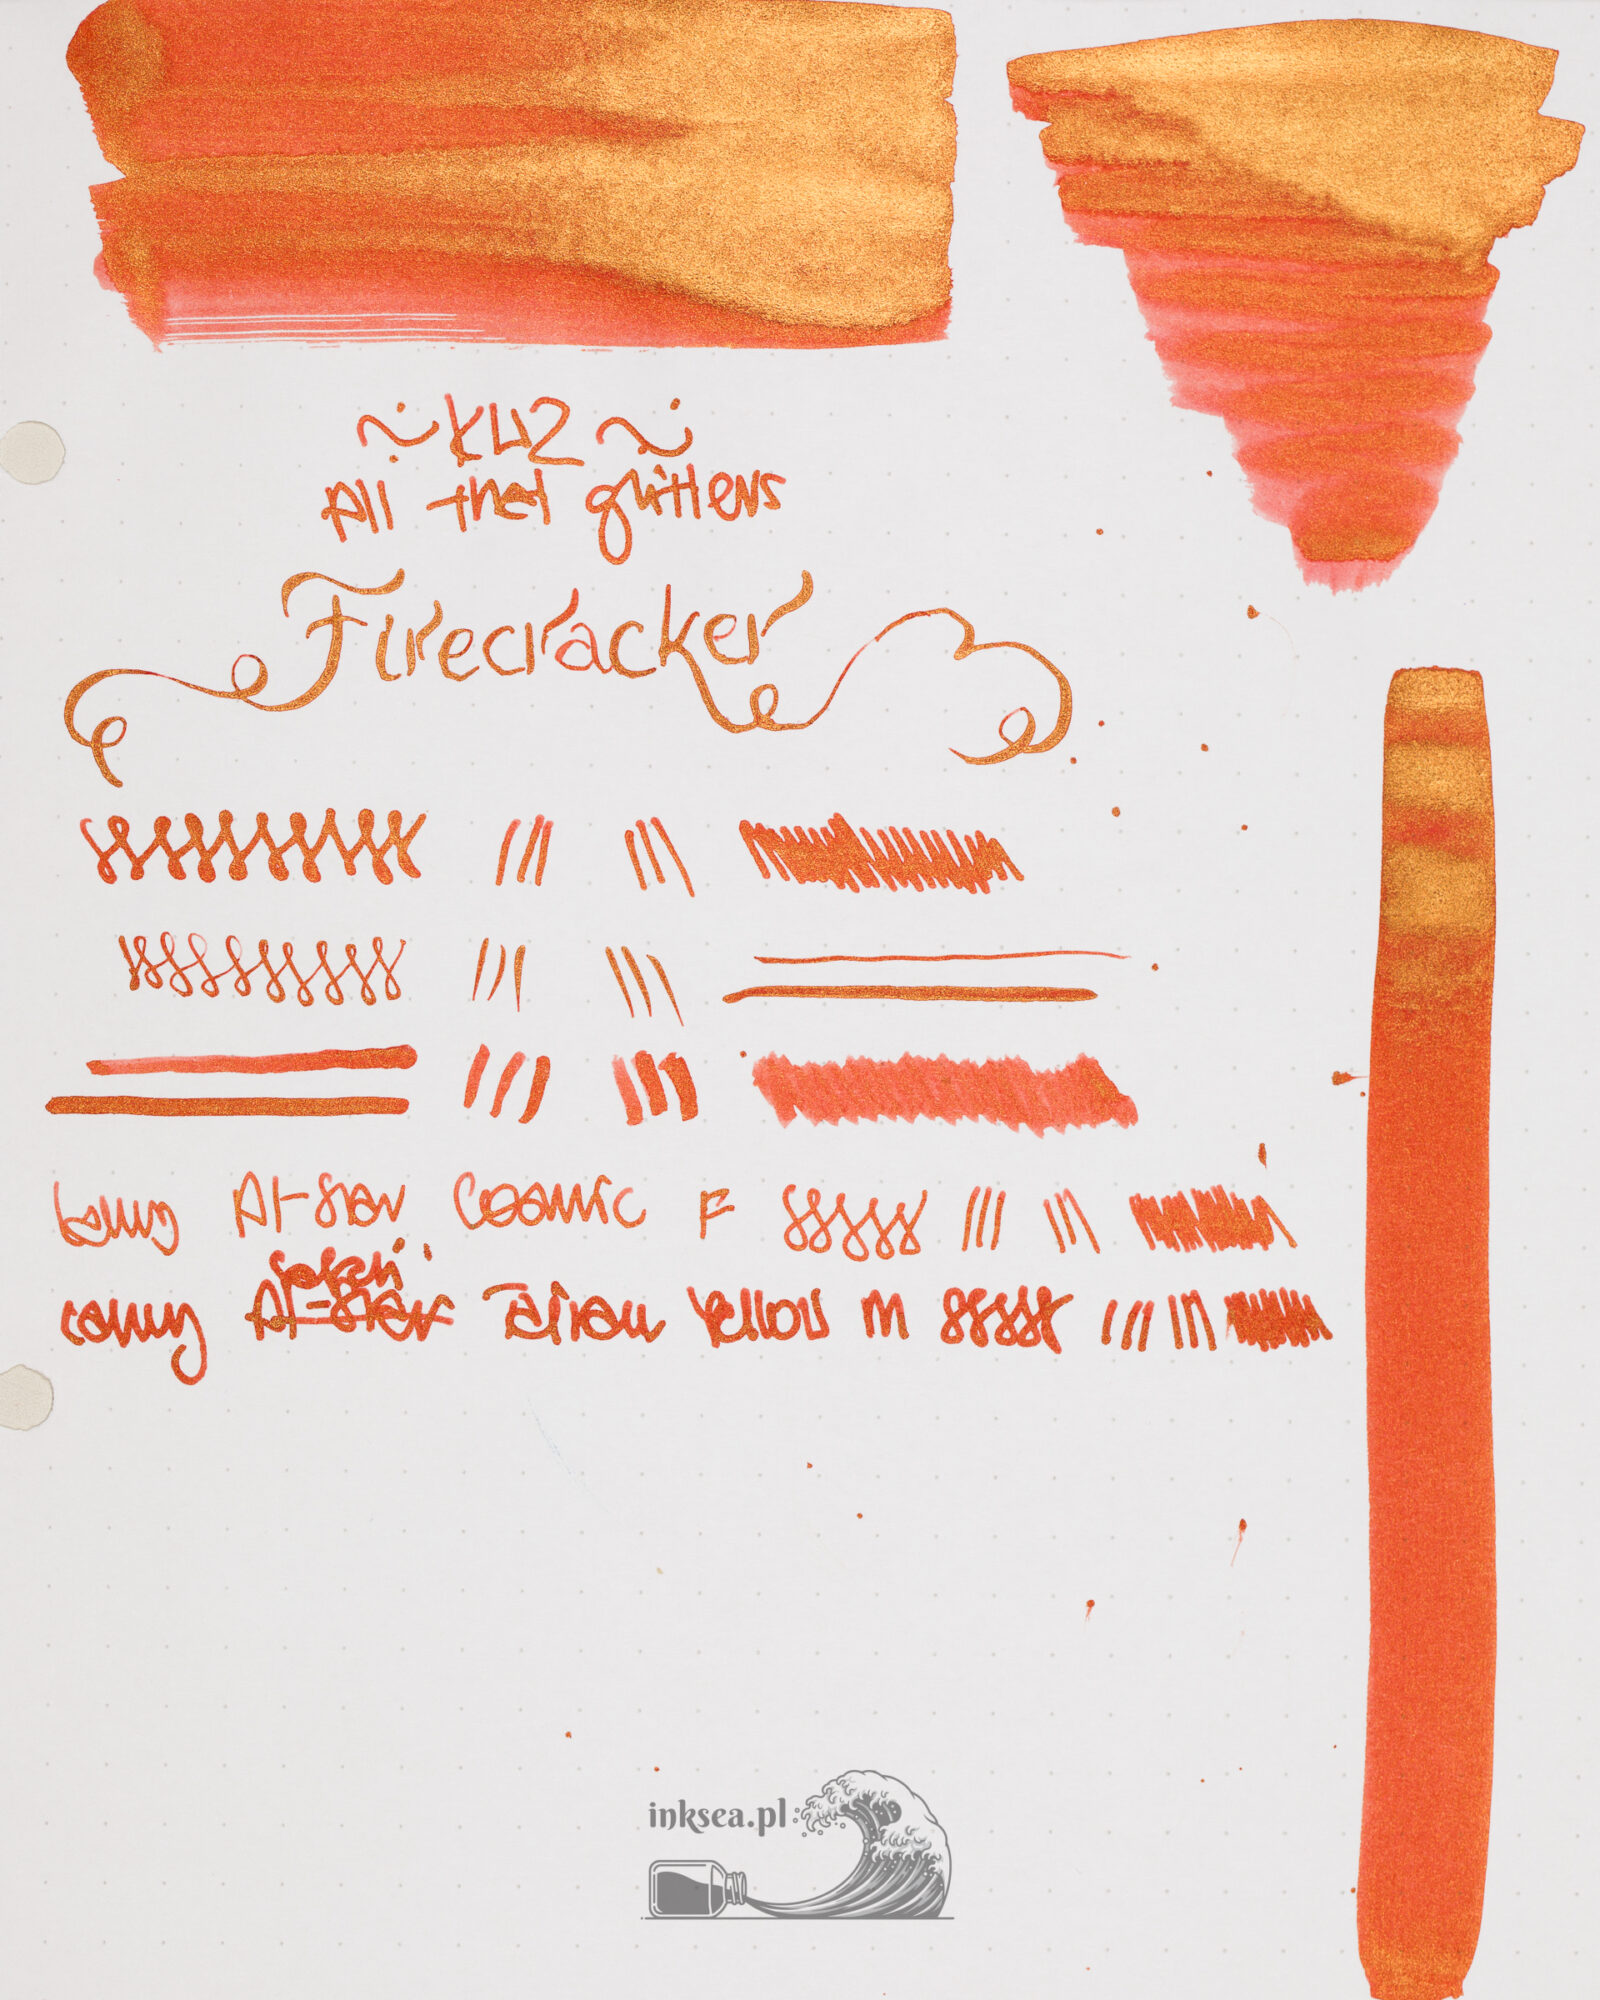 ~ KWZ ~
All that glitters
Firecracker
Lamy Al-star Cosmic F
Safari
Lamy Al-star Yellow M
inksea.pl